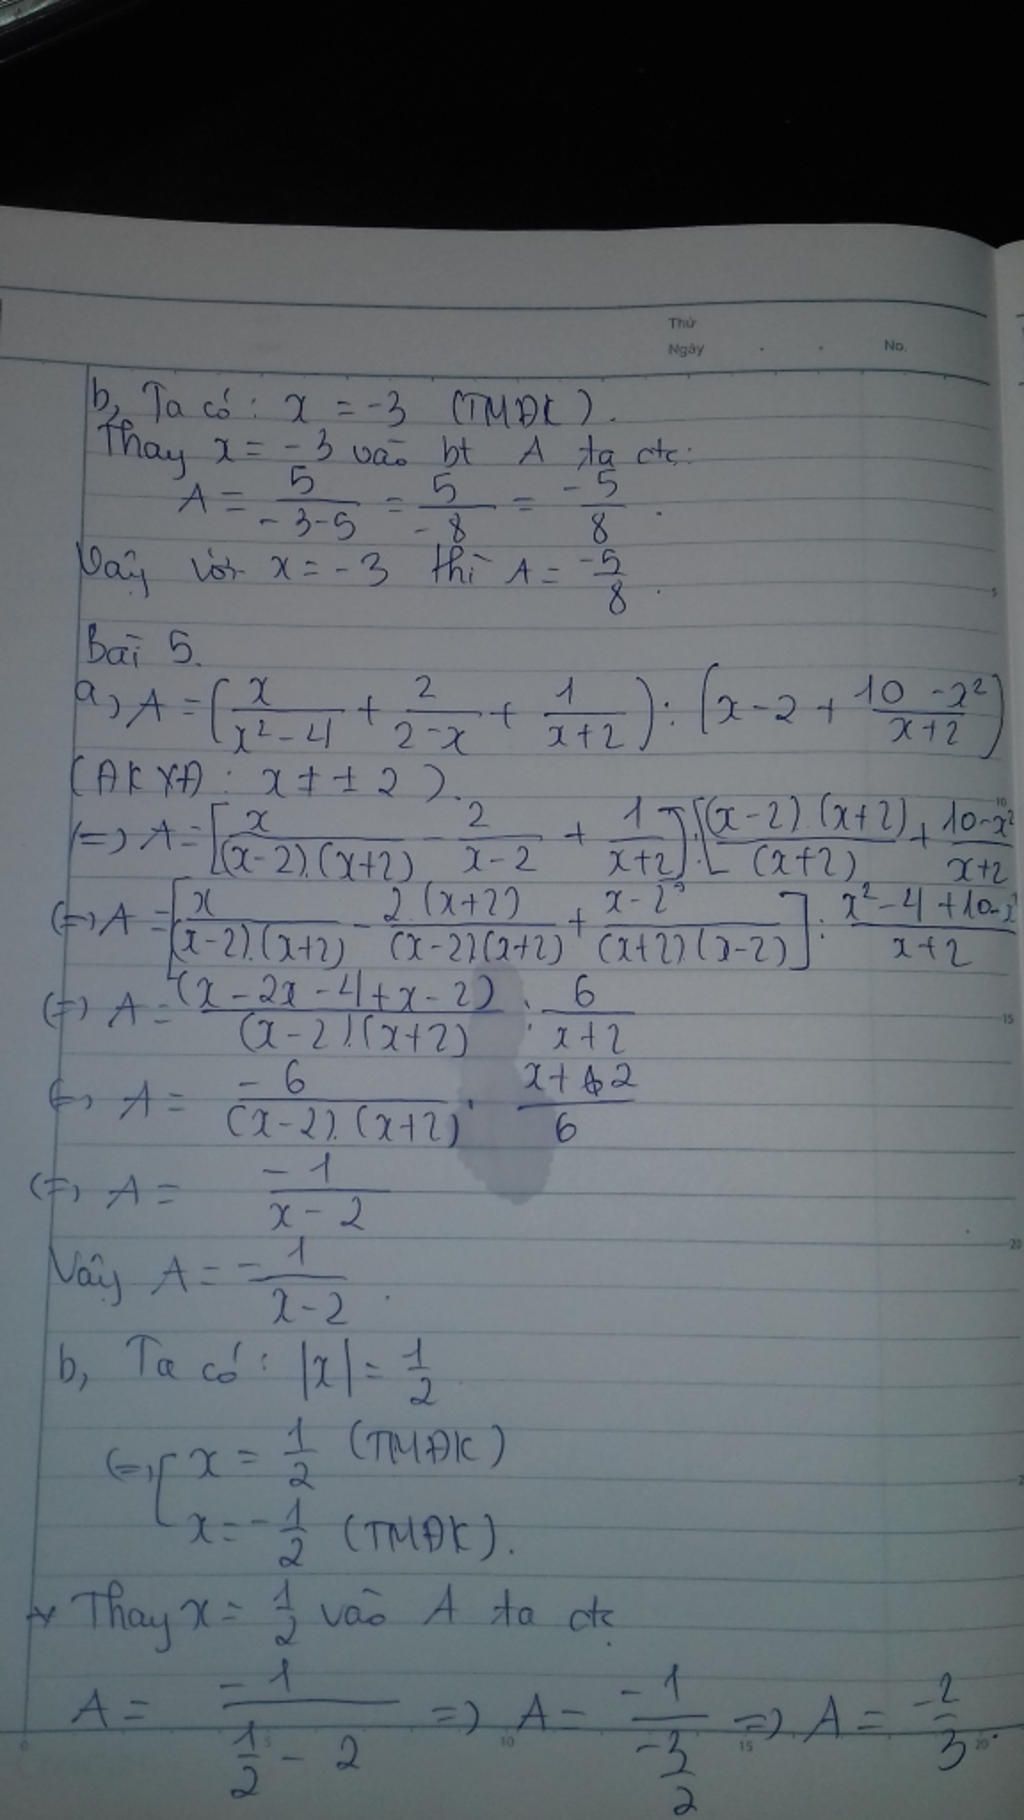 Thứ
Ngày No.
b, Ta có: x = -3 (TMĐK).
Thay x = -3 vào bt A ta đc:
A = 5/(-3-5) = 5/-8 = -5/8.
Vậy với x = -3 thì A = -5/8.
Bài 5.
a, A = (x/(x²-4) + 2/(2-x) + 1/(x+2)) : (x-2 + (10-x²)/(x+2))
(ĐKXĐ: x ≠ ±2).
(=) A = [x/((x-2).(x+2)) - 2/(x-2) + 1/(x+2)] : [(x-2).(x+2)/(x+2) + (10-x²)/(x+2)
(=) A = [x/((x-2).(x+2)) - 2.(x+2)/((x-2)(x+2)) + (x-2)/((x+2)(x-2))] : (x²-4+10-x²)/(x+2)
(=) A = (x-2x-4+x-2)/((x-2).(x+2)) : 6/(x+2)
(=) A = -6/((x-2).(x+2)) . (x+2)/6
(=) A = -1/(x-2)
Vậy A = -1/(x-2).
b, Ta có: |x| = 1/2
(=) [ x = 1/2 (TMĐK)
x = -1/2 (TMĐK).
* Thay x = 1/2 vào A ta đc
A = -1/(1/2 - 2) => A = -1/(-3/2) => A = -2/3.